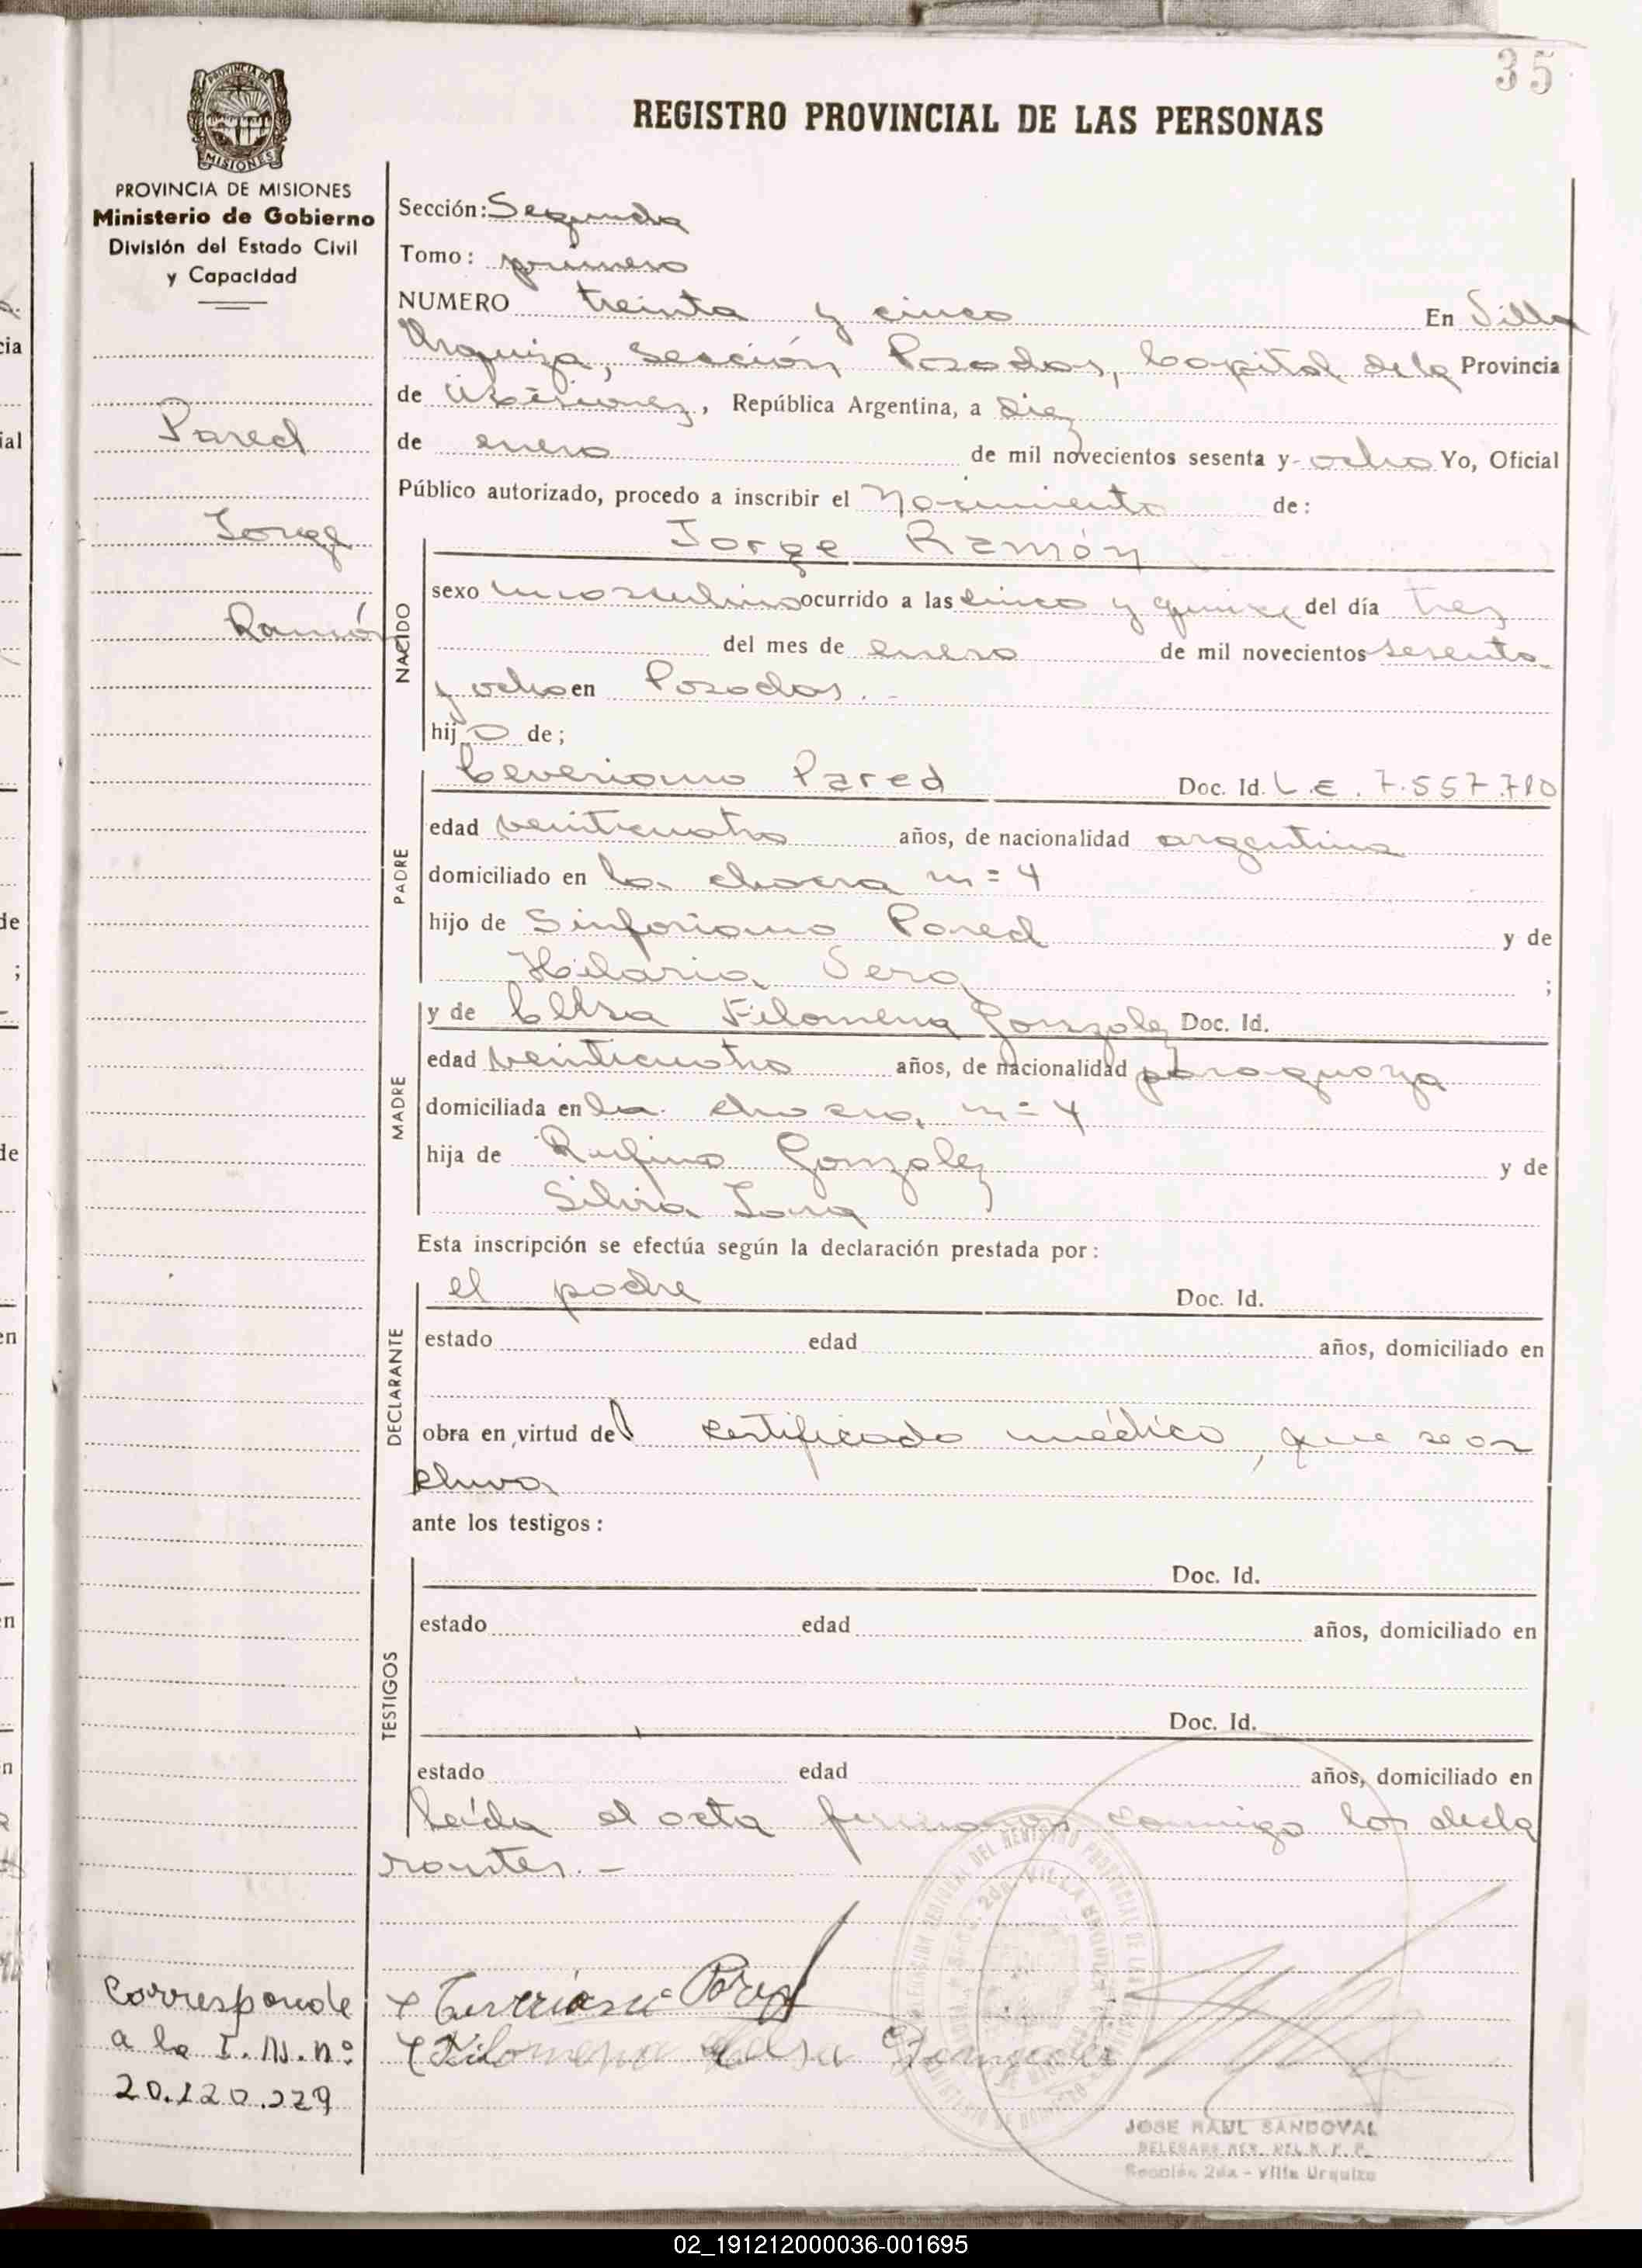 35
REGISTRO PROVINCIAL DE LAS PERSONAS
PROVINCIA DE MISIONES
Ministerio de Gobierno
División del Estado Civil
y Capacidad
Pared
Jorge
Ramón
Sección: Segunda
Tomo: primero
NUMERO treinta y cinco En Villa
Urquiza, sección Posadas, Capital de la Provincia
de Misiones, República Argentina, a diez
de enero de mil novecientos sesenta y ocho Yo, Oficial
Público autorizado, procedo a inscribir el Nacimiento de:
Jorge Ramón
NACIDO
sexo masculino ocurrido a las cinco y quince del día tres
del mes de enero de mil novecientos sesenta
y ocho en Posadas.-
hijo de;
PADRE
Ceveriano Pared Doc. Id. L.E. 7.557.710
edad veinticuatro años, de nacionalidad argentina
domiciliado en la chacra n=4
hijo de Sinforiano Pared y de
Hilaria Vera ;
MADRE
y de Celsa Filomena Gonzalez Doc. Id.
edad veinticuatro años, de nacionalidad paraguaya
domiciliada en la chacra n=4
hija de Rufino Gonzalez y de
Silvia Jara
Esta inscripción se efectúa según la declaración prestada por:
DECLARANTE
el padre Doc. Id.
estado edad años, domiciliado en
obra en virtud del certificado médico, que se ar
chiva
ante los testigos:
TESTIGOS
Doc. Id.
estado edad años, domiciliado en
Doc. Id.
estado edad años, domiciliado en
Leída el acta firman conmigo los decla
rantes.-
Corresponde
a la I.N.nº
20.120.229
Filomena Celsa
JOSE RAUL SANDOVAL
Sección 2da - Villa Urquiza
02_191212000036-001695